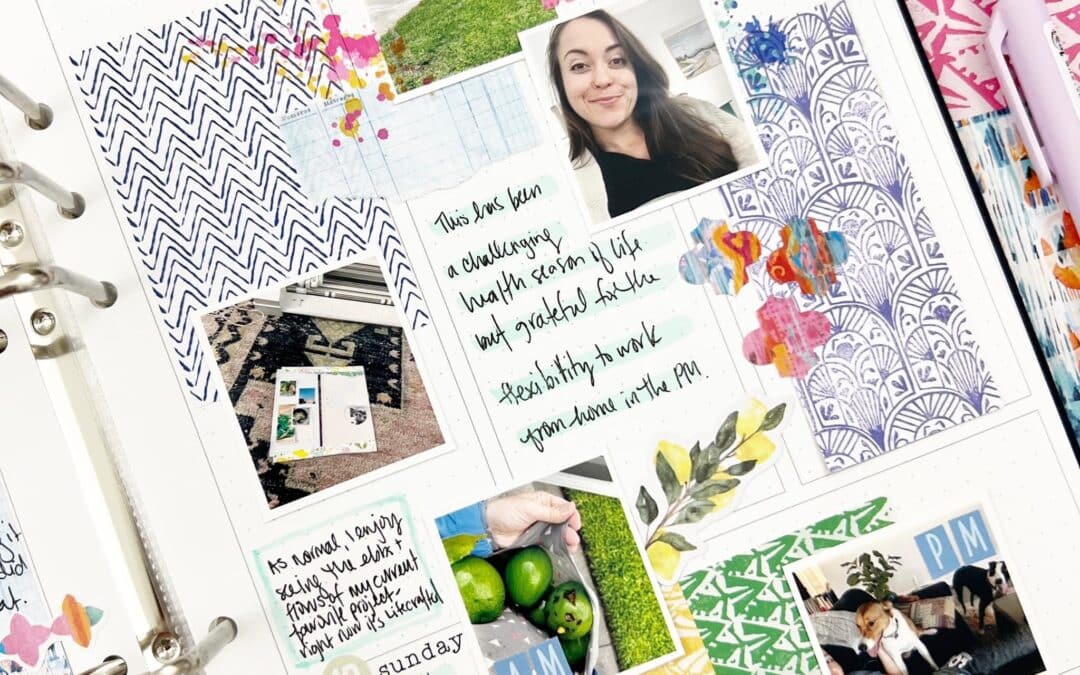 This has been
a challenging
health season of life
but grateful for the
flexibility to work
from home in the PM.
As normal, I enjoy
seeing the ebbs +
flows of my current
favorite project-
right now it's Lifecrafted
sunday
AM
PM